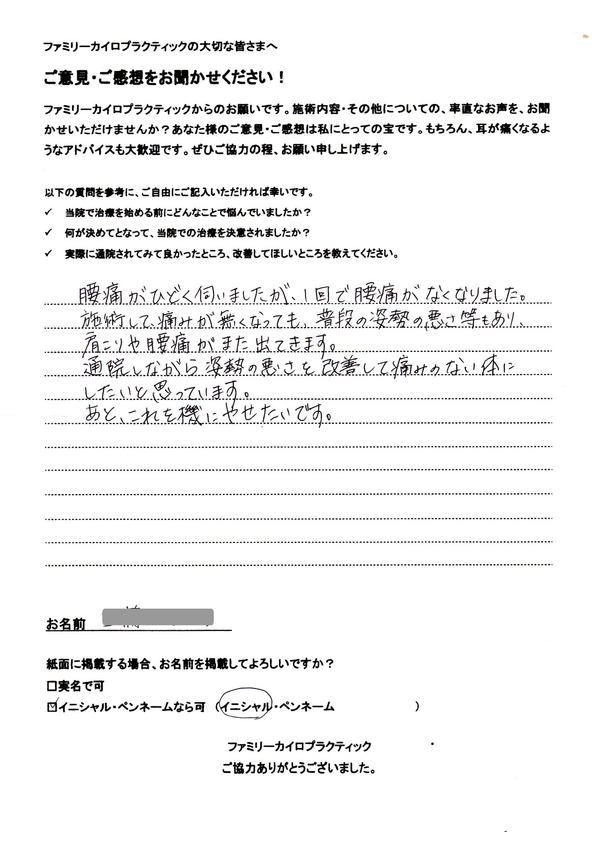 ファミリーカイロプラクティックの大切な皆さまへ
ご意見・ご感想をお聞かせください！
ファミリーカイロプラクティックからのお願いです。施術内容・その他についての、率直なお声を、お聞
かせいただけませんか？あなた様のご意見・ご感想は私にとっての宝です。もちろん、耳が痛くなるよ
うなアドバイスも大歓迎です。ぜひご協力の程、お願い申し上げます。
以下の質問を参考に、ご自由にご記入いただければ幸いです。
✓ 当院で治療を始める前にどんなことで悩んでいましたか？
✓ 何が決めてとなって、当院での治療を決意されましたか？
✓ 実際に通院されてみて良かったところ、改善してほしいところを教えてください。
腰痛がひどく伺いましたが、1回で腰痛がなくなりました。
施術して、痛みが無くなっても、普段の姿勢の悪さ等もあり、
肩こりや腰痛がまた出てきます。
通院しながら姿勢の悪さを改善して痛みのない体に
したいと思っています。
あと、これを機にやせたいです。
お名前
紙面に掲載する場合、お名前を掲載してよろしいですか？
□実名で可
☑イニシャル・ペンネームなら可 （イニシャル・ペンネーム ）
ファミリーカイロプラクティック
ご協力ありがとうございました。